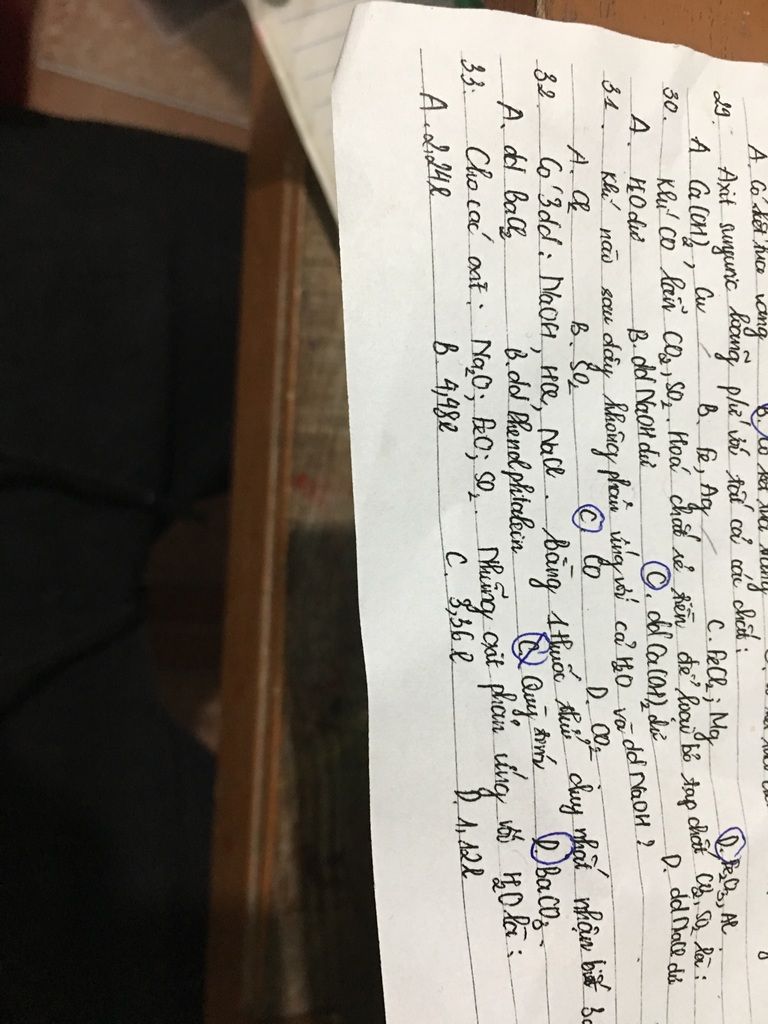 A. Có kết tủa vàng B. Có kết tủa
29. Axit sunfuric loãng phứ với tất cả các chất:
A Ca(OH)2, Cu B. Fe, Ag C. FeCl2; Mg D. Fe2O3, Al.
30. Khí CO lẫn CO2, SO2. Hoá chất rẻ tiền để loại bỏ tạp chất CO2, SO2 là:
A. H2O dư B. dd NaOH dư C. dd Ca(OH)2 dư D. dd NaCl dư
31. Khí nào sau đây không phản ứng với cả H2O và dd NaOH?
A. Cl2 B. SO2 C CO D. CO2
32 Có 3dd: NaOH, HCl, NaCl. bằng 1 thuốc thử duy nhất nhận biết 3
A. dd BaCl2 B. dd Phenolphtalein C. Quỳ tím D. BaCO3.
33. Cho các oxit: Na2O; FeO; SO2. Những oxit phản ứng với H2O là:
A. 2,24l B 4,48l C. 3,36 l D. 1,12l